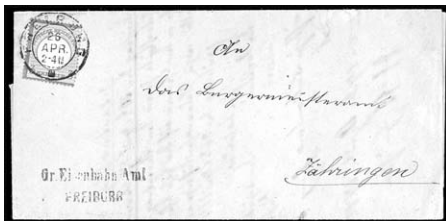 FREIBURG
26
APR.
2-4N
An
das Bürgermeisteramt
Zähringen
Gr. Eisenbahn Amt
FREIBURG